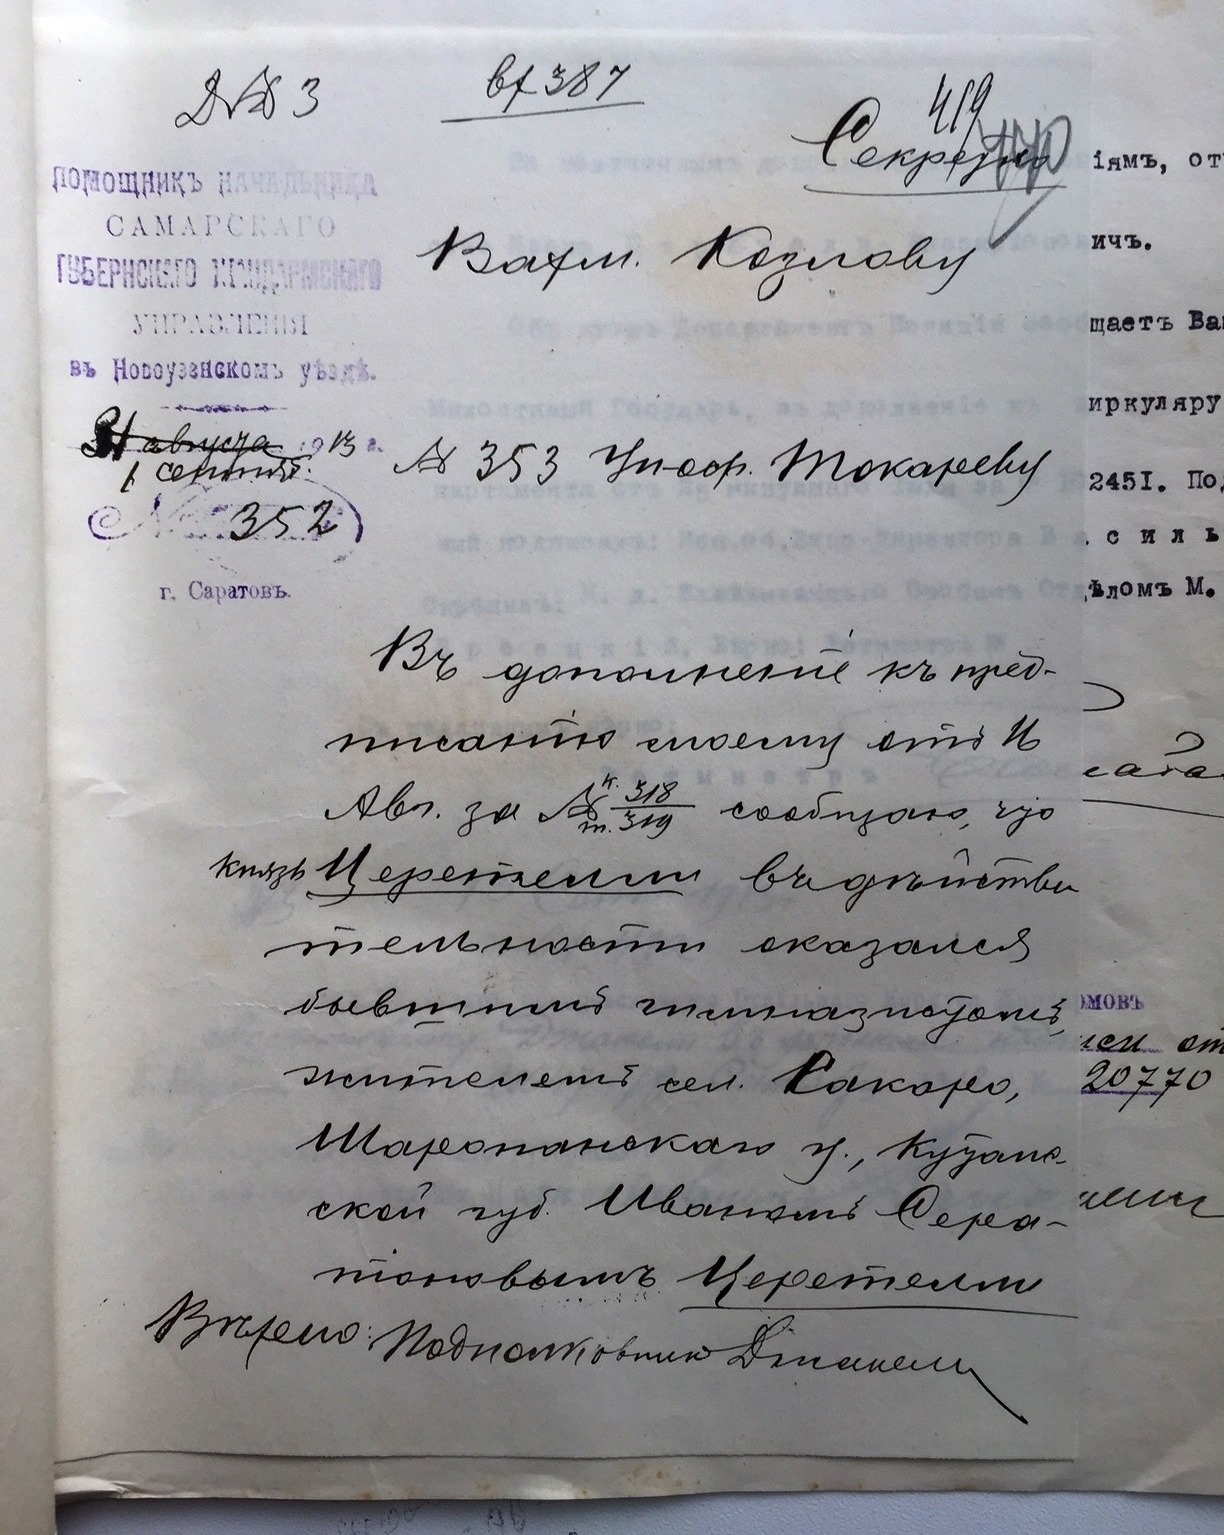 Д № 3
вх 387
419
Секретно
ПОМОЩНИКЪ НАЧАЛЬНИКА
САМАРСКАГО
ГУБЕРНСКАГО ЖАНДАРМСКАГО
УПРАВЛЕНІЯ
въ Новоузенскомъ уѣздѣ.
31 августа 1913 г.
1 сентяб.
№ 352
г. Саратовъ.
Вахм. Козлову
№ 353 Унт.оф. Токареву
Въ дополненіе къ пред-
писанію моему отъ 11
Авг. за № к. 318
т. 319 сообщаю, что
князь Церетелли въ дѣйстви
тельности оказался
бывшимъ гимназистомъ,
жителемъ сел. Сакаро,
Шаропанскаго у., Кутаис-
ской губ. Иваномъ Сера-
піоновымъ Церетелли
Вѣрно: Подполковникъ
іямъ, отъ
ичъ.
щаетъ Ва
иркуляру
2451. Под
силь
ѣломъ М.
омовъ
от
20770